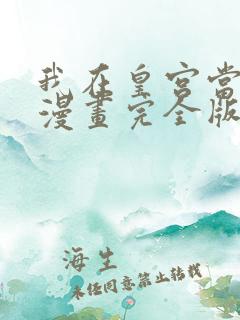 我在皇宫當
漫畫完全版
海生
未经同意禁止转载